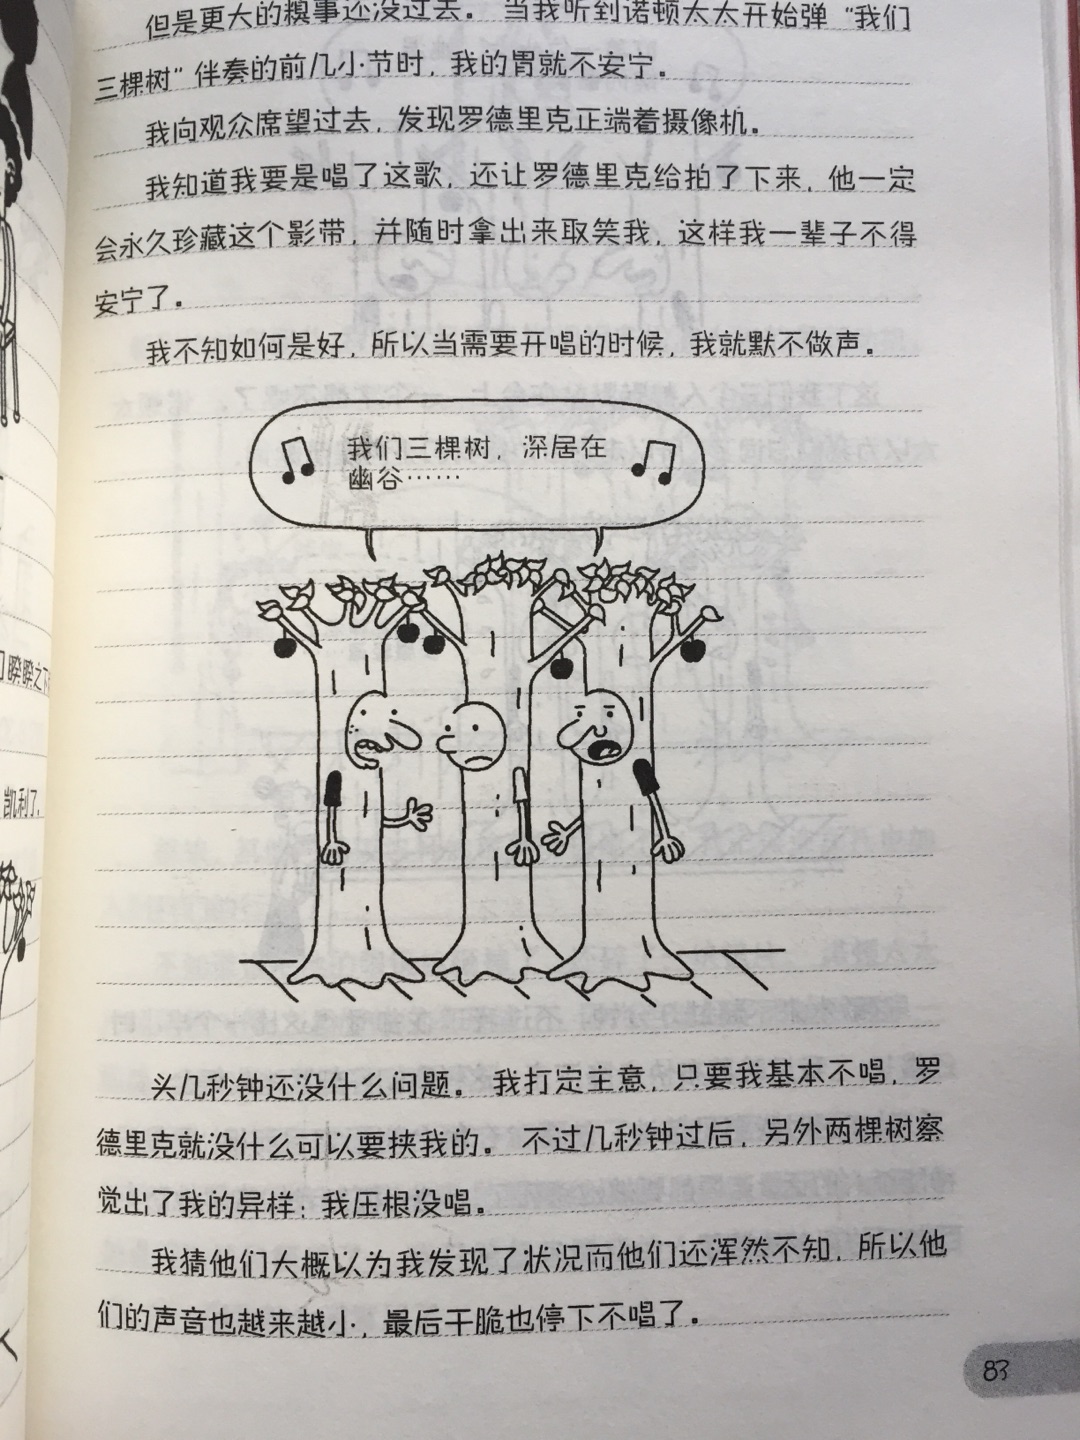 但是更大的糗事还没过去。 当我听到诺顿太太开始弹“我们
三棵树”伴奏的前几小节时，我的胃就不安宁。
我向观众席望过去，发现罗德里克正端着摄像机。
我知道我要是唱了这歌，还让罗德里克给拍了下来，他一定
会永久珍藏这个影带，并随时拿出来取笑我，这样我一辈子不得
安宁了。
我不知如何是好，所以当需要开唱的时候，我就默不做声。
我们三棵树，深居在
幽谷……
头几秒钟还没什么问题。 我打定主意，只要我基本不唱，罗
德里克就没什么可以要挟我的。 不过几秒钟过后，另外两棵树察
觉出了我的异样：我压根没唱。
我猜他们大概以为我发现了状况而他们还浑然不知，所以他
们的声音也越来越小，最后干脆也停下不唱了。
83
睽睽之下
凯利了，